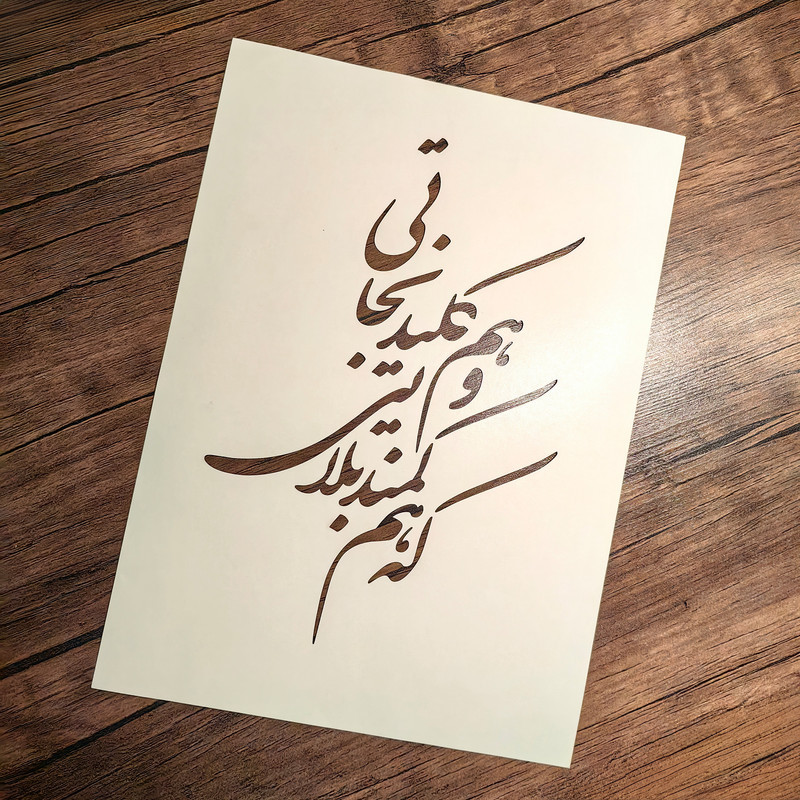 که هم
کمند بلایی
و هم کلید نجاتی